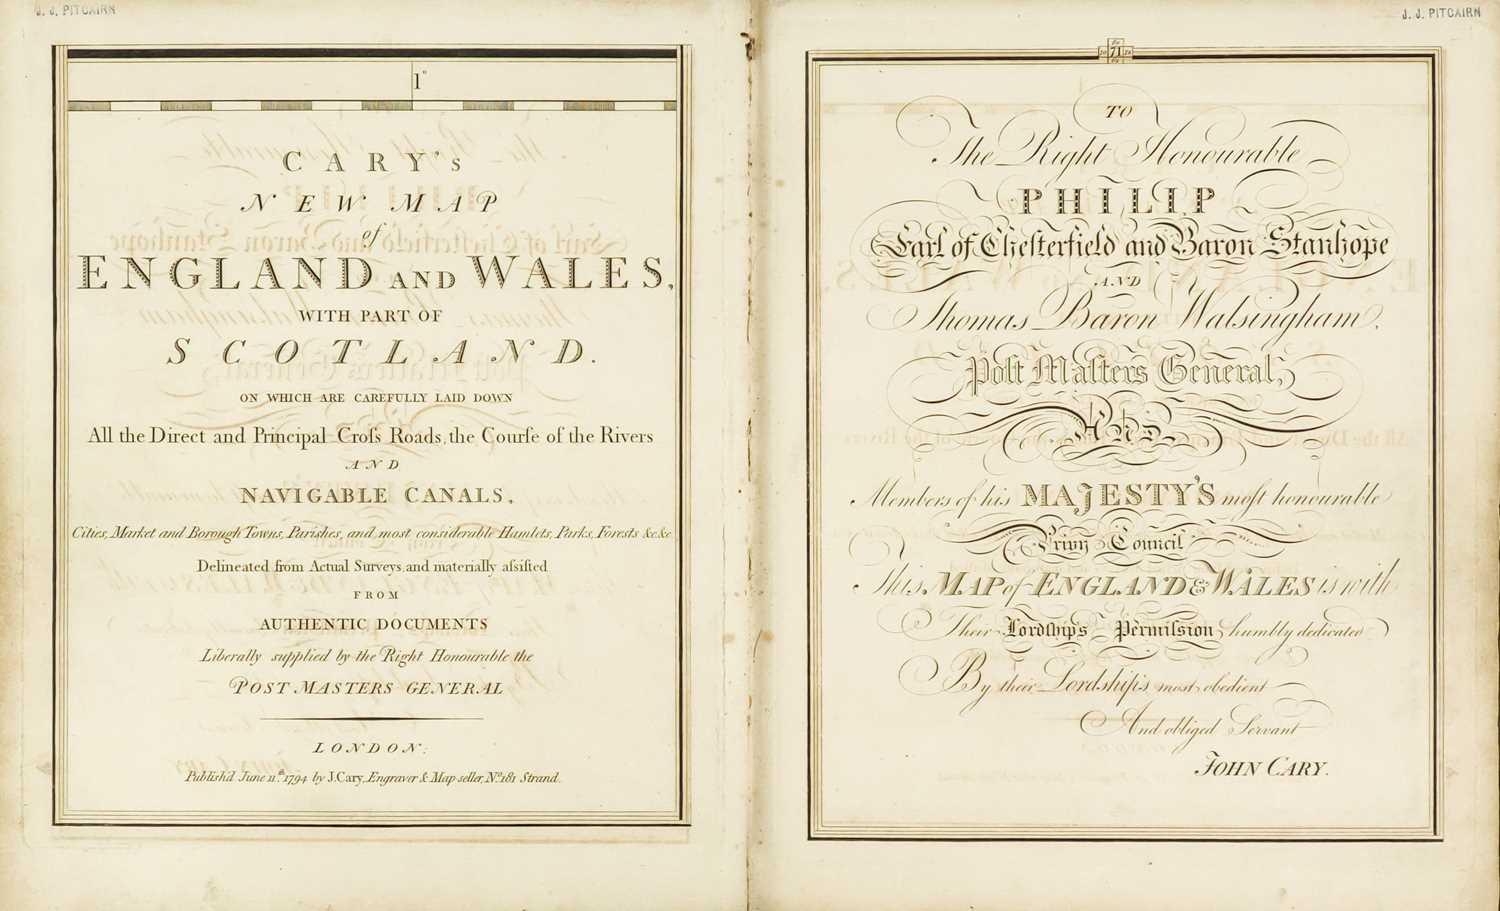 J. J. PITCAIRN
1°
CARY'S
NEW MAP
of
ENGLAND AND WALES,
WITH PART OF
SCOTLAND.
ON WHICH ARE CAREFULLY LAID DOWN
All the Direct and Principal Croſs Roads, the Courſe of the Rivers
AND
NAVIGABLE CANALS,
Cities, Market and Borough Towns, Parishes, and most considerable Hamlets, Parks, Forests &c &c
Delineated from Actual Surveys, and materially aſsiſted
FROM
AUTHENTIC DOCUMENTS
Liberally supplied by the Right Honourable the
POST MASTERS GENERAL
LONDON:
Publish'd June 11th 1794 by J. Cary, Engraver & Map-seller, No. 181 Strand.
J. J. PITCAIRN
71
TO
The Right Honourable
PHILIP
Earl of Chesterfield and Baron Stanhope
AND
Thomas Baron Walsingham,
Poſt Maſters General,
AND
Members of his MAJESTY'S moſt honourable
Privy Council
This MAP of ENGLAND & WALES is with
Their Lordſhip's Permiſsion humbly dedicated
By their Lordship's most obedient
And obliged Servant
JOHN CARY.